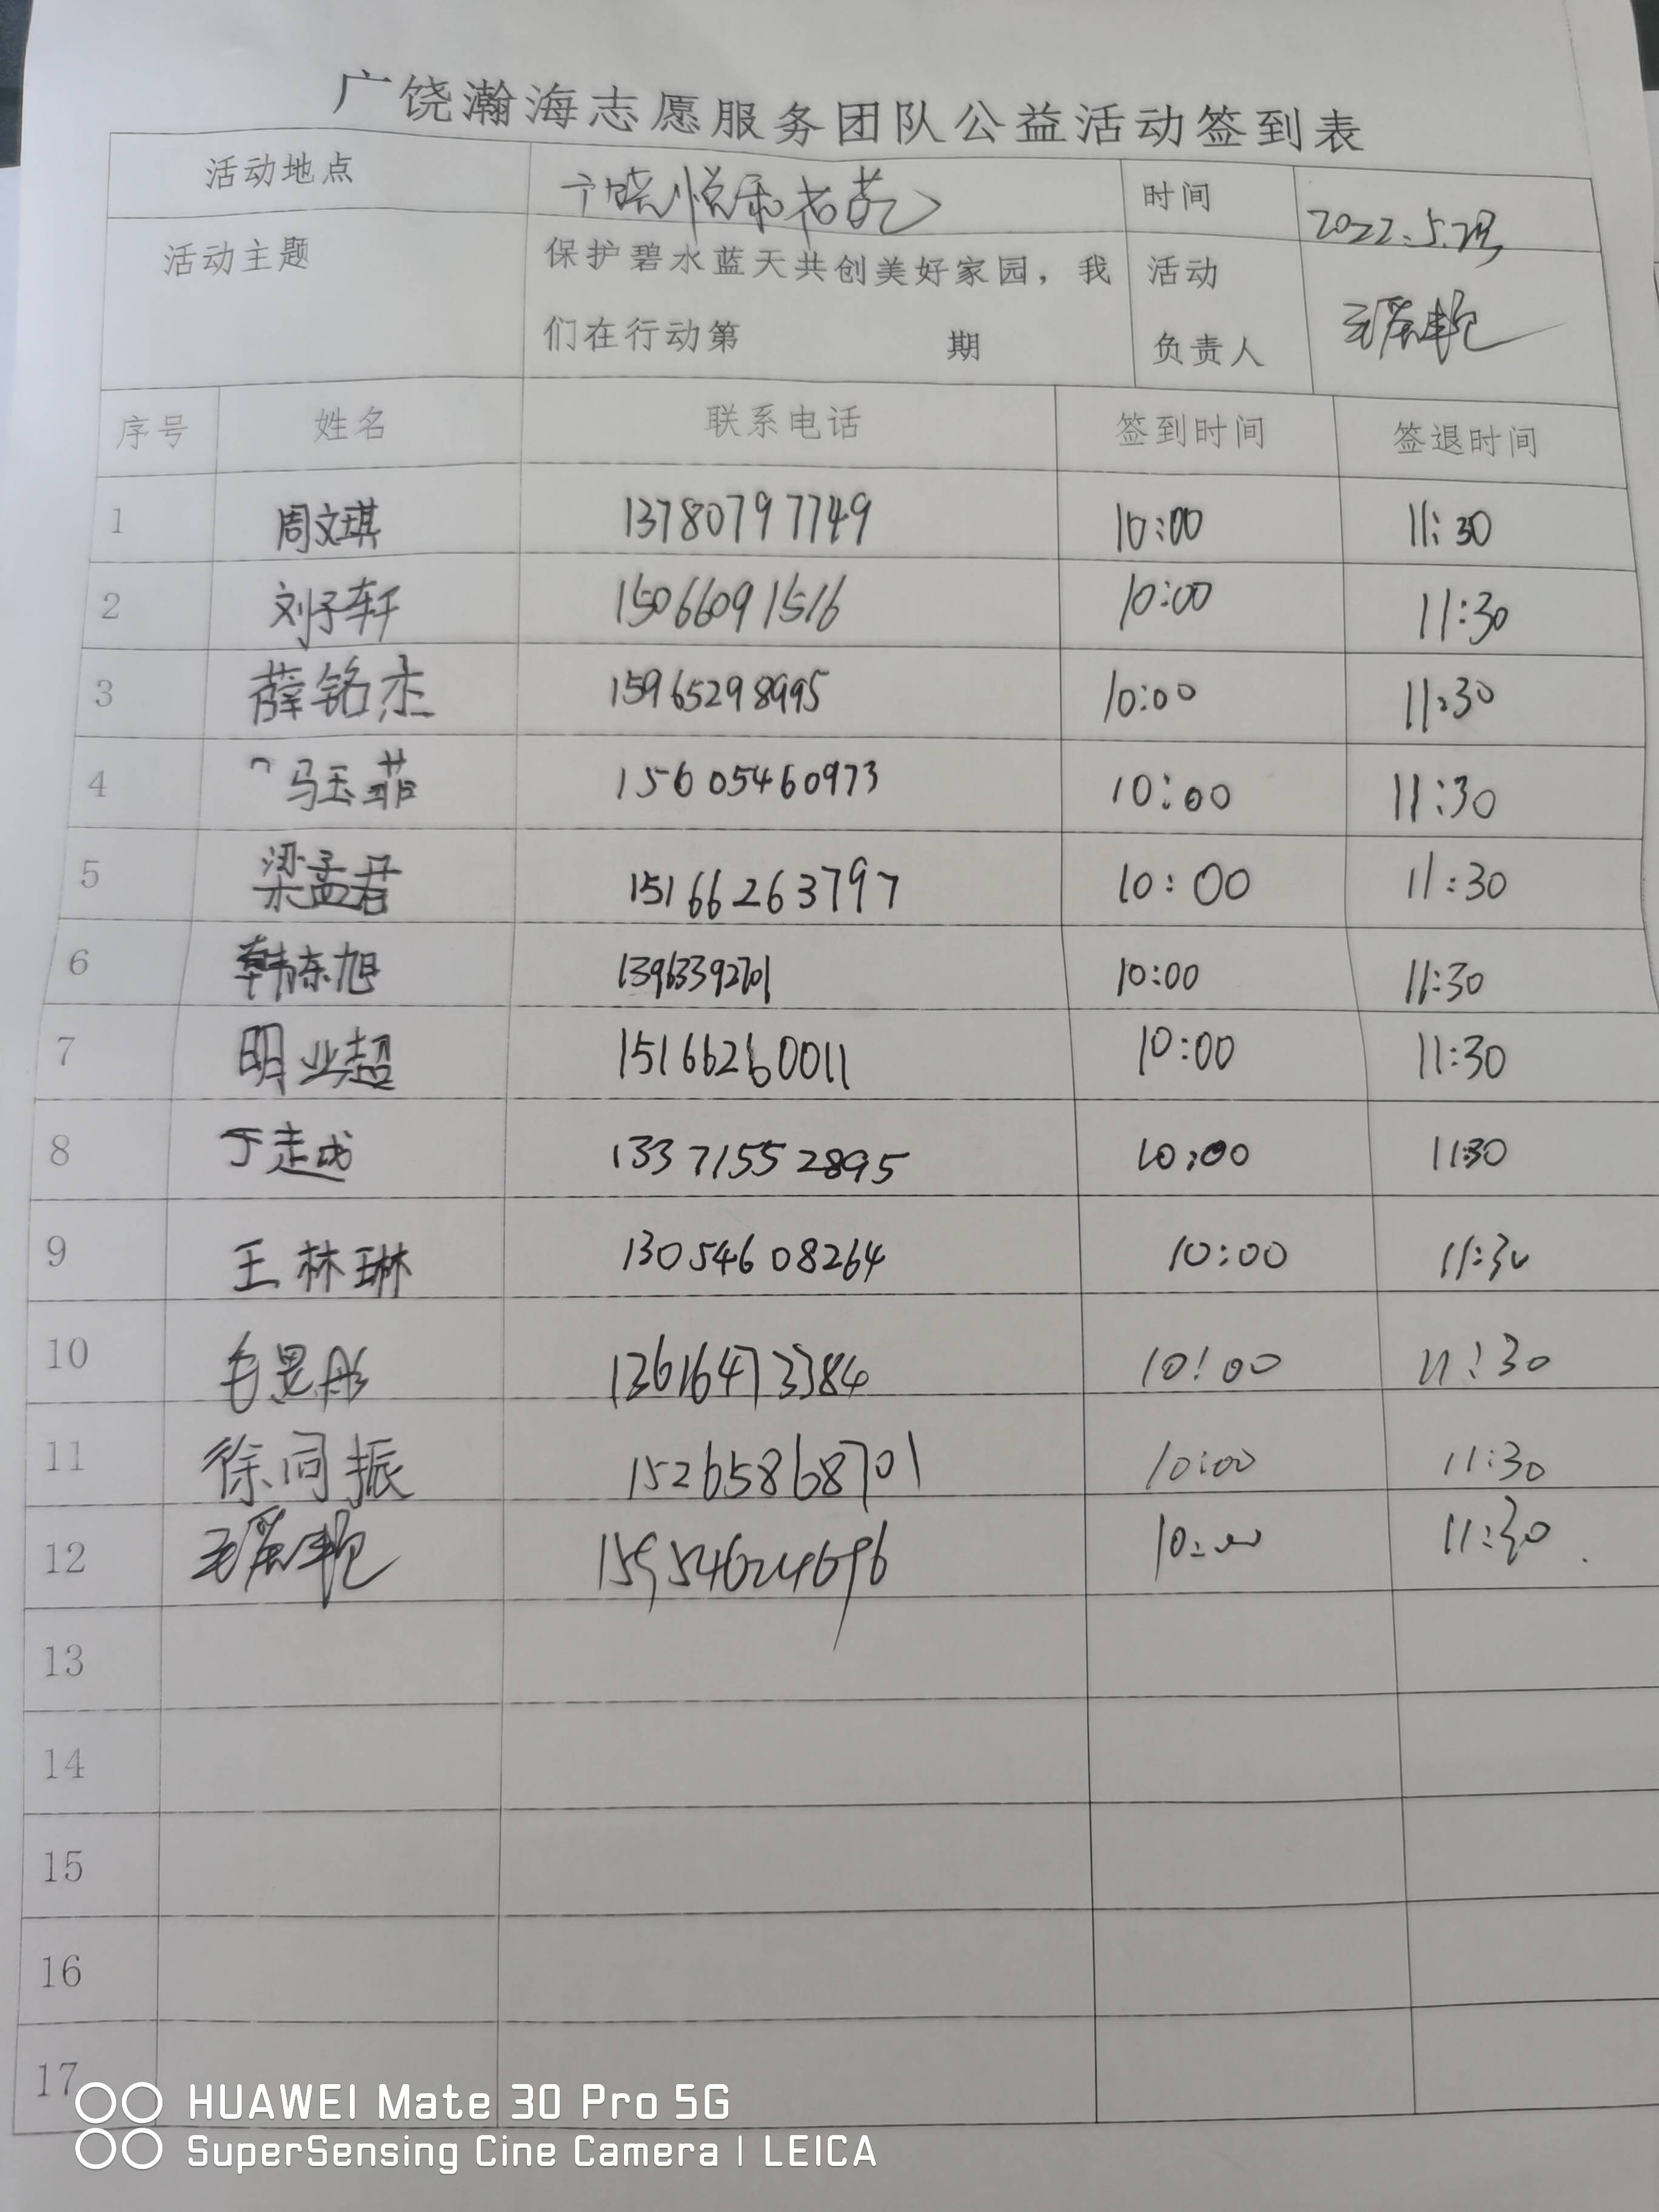 广饶瀚海志愿服务团队公益活动签到表
活动地点 广饶悦和名苑 时间 2022.5.28
活动主题 保护碧水蓝天共创美好家园，我 活动
们在行动第 期 负责人
序号 姓名 联系电话 签到时间 签退时间
1 周文琪 13780797749 10:00 11:30
2 刘子轩 15066091516 10:00 11:30
3 薛铭杰 15965298995 10:00 11:30
4 马玉菲 15605460973 10:00 11:30
5 梁孟君 15166263797 10:00 11:30
6 韩东旭 13963392701 10:00 11:30
7 明业超 15166260011 10:00 11:30
8 于志成 13371552895 10:00 11:30
9 王林琳 13054608264 10:00 11:30
10 毛昱彤 13616473384 10:00 11:30
11 徐同振 15265868701 10:00 11:30
12 15954624696 10:00 11:30
13
14
15
16
17
HUAWEI Mate 30 Pro 5G
SuperSensing Cine Camera | LEICA